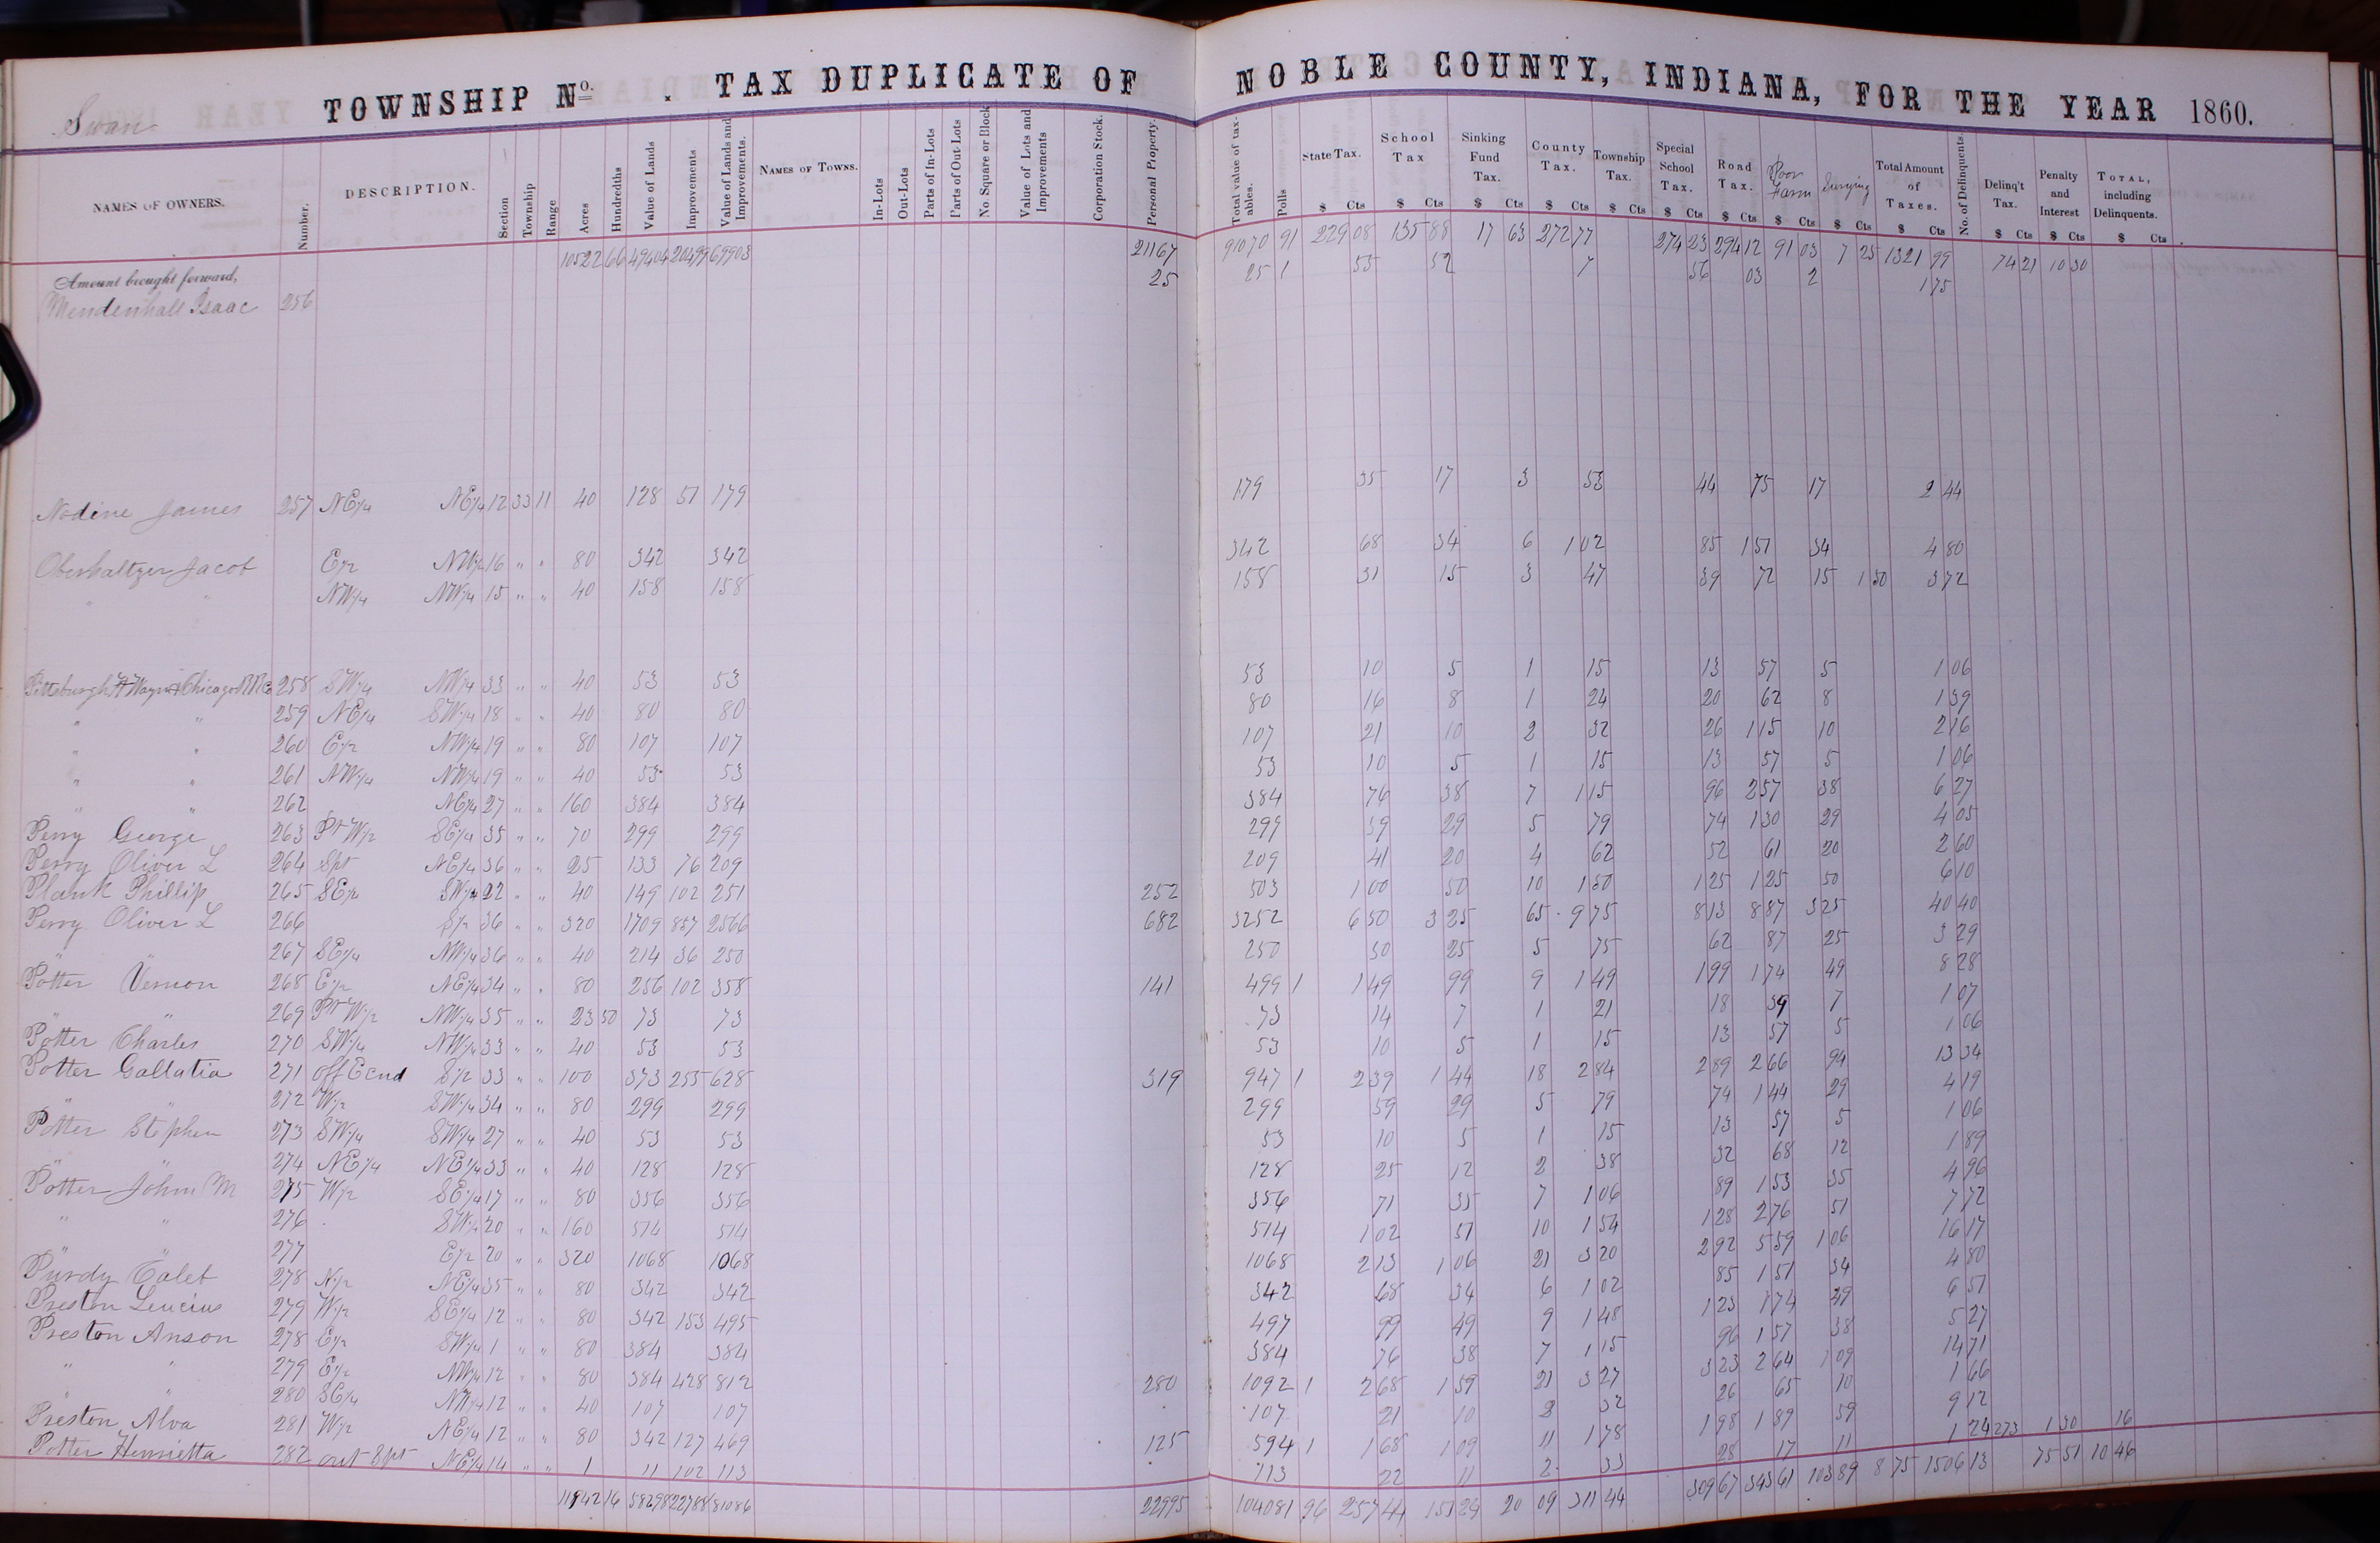 Swan TOWNSHIP No. . TAX DUPLICATE OF NOBLE COUNTY, INDIANA, FOR THE YEAR 1860.
NAMES OF OWNERS. Number. DESCRIPTION. Section Township Range Acres Hundredths Value of Lands Improvements Value of Lands and Improvements. NAMES OF TOWNS. In-Lots Out-Lots Parts of In-Lots Parts of Out Lots No. Square or Block Value of Lots and Improvements Corporation Stock. Personal Property. Total value of taxables. Polls State Tax. School Tax Sinking Fund Tax. County Tax. Township Tax. Special School Tax. Road Tax. Poor Farm Total Amount of Taxes. No. of Delinquents. Delinq't Tax. Penalty and Interest TOTAL, including Delinquents.
$ Cts $ Cts $ Cts $ Cts $ Cts $ Cts $ Cts $ Cts $ Cts $ Cts $ Cts $ Cts $ Cts
Amount brought forward, 10522 66 49404 20499 69903 21167 91070 91 229 08 135 88 17 63 272 77 274 23 294 12 91 03 7 25 1321 99 74 21 10 30
Mendenhall Isaac 256 25 25 1 55 52 7 56 03 2 1 75
Nodine James 257 NE1/4 NE1/4 12 33 11 40 128 51 179 179 35 17 3 53 44 75 17 2 44
Oberhaltzer Jacob E1/2 NW1/4 16 " " 80 342 342 342 68 34 6 1 02 85 1 51 34 4 80
" " NW1/4 NW1/4 15 " " 40 158 158 158 31 15 3 47 39 72 15 1 50 3 72
Pittsburgh Ft Wayne & Chicago RR Co 258 SW1/4 NW1/4 33 " " 40 53 53 53 10 5 1 15 13 57 5 1 06
" " 259 NE1/4 SW1/4 18 " " 40 80 80 80 16 8 1 24 20 62 8 1 39
" " 260 E1/2 NW1/4 19 " " 80 107 107 107 21 10 2 32 26 1 15 10 2 16
" " 261 NW1/4 NW1/4 19 " " 40 53 53 53 10 5 1 15 13 57 5 1 06
" " 262 NE1/4 27 " " 160 384 384 384 76 38 7 1 15 96 2 57 38 6 27
Perry George 263 Pt W1/2 SE1/4 35 " " 70 299 299 299 59 29 5 79 74 1 30 29 4 05
Perry Oliver L 264 Spt NE1/4 36 " " 25 133 76 209 209 41 20 4 62 52 61 20 2 60
Plank Phillip 265 SE1/4 SW1/4 22 " " 40 149 102 251 252 503 1 00 50 10 1 50 1 25 1 25 50 6 10
Perry Oliver L 266 S1/2 36 " " 320 1709 857 2566 682 3252 6 50 3 25 65 9 75 8 13 8 87 3 25 40 40
" " 267 SE1/4 NW1/4 36 " " 40 214 36 250 250 50 25 5 75 62 87 25 3 29
Potter Vernon 268 E1/2 NE1/4 34 " " 80 256 102 358 141 499 1 1 49 99 9 1 49 1 99 1 74 49 8 28
" " 269 Pt W1/2 NW1/4 35 " " 23 50 73 73 73 14 7 1 21 18 39 7 1 07
Potter Charles 270 SW1/4 NW1/4 33 " " 40 53 53 53 10 5 1 15 13 57 5 1 06
Potter Gallatia 271 off E end S1/2 33 " " 100 373 255 628 319 947 1 2 39 1 44 18 2 84 2 89 2 66 94 13 34
" " 272 W1/2 SW1/4 34 " " 80 299 299 299 59 29 5 79 74 1 44 29 4 19
Potter Stephen 273 SW1/4 SW1/4 27 " " 40 53 53 53 10 5 1 15 13 57 5 1 06
" " 274 NE1/4 NE1/4 33 " " 40 128 128 128 25 12 2 38 32 68 12 1 89
Potter John M 275 W1/2 SE1/4 17 " " 80 356 356 356 71 35 7 1 06 89 1 53 35 4 96
" " 276 SW1/4 20 " " 160 514 514 514 1 02 51 10 1 54 1 28 2 76 51 7 72
" " 277 E1/2 20 " " 320 1068 1068 1068 2 13 1 06 21 3 20 2 92 5 39 1 06 16 17
Purdy Calet 278 N1/2 NE1/4 35 " " 80 342 342 342 68 34 6 1 02 85 1 51 34 4 80
Preston Leucius 279 W1/2 SE1/4 12 " " 80 342 153 495 497 99 49 9 1 48 1 23 1 74 49 6 51
Preston Anson 278 E1/2 SW1/4 1 " " 80 384 384 384 76 38 7 1 15 96 1 57 38 5 27
" " 279 E1/2 NW1/4 12 " " 80 384 428 812 280 1092 1 2 68 1 59 21 3 27 3 23 2 64 1 09 14 71
" " 280 SE1/4 NW1/4 12 " " 40 107 107 107 21 10 2 32 26 65 10 1 66
Preston Alva 281 W1/2 NE1/4 12 " " 80 342 127 469 125 594 1 1 68 1 09 11 1 78 1 98 1 89 59 9 12
Potter Henrietta 282 out Spt NE1/4 14 " " 1 11 102 113 113 22 11 2 33 28 17 11 1 24 273 1 30 16
11842 16 58298 22788 81086 22995 104081 96 257 44 151 29 20 09 311 44 309 67 343 61 103 89 8 75 1506 13 75 51 10 46